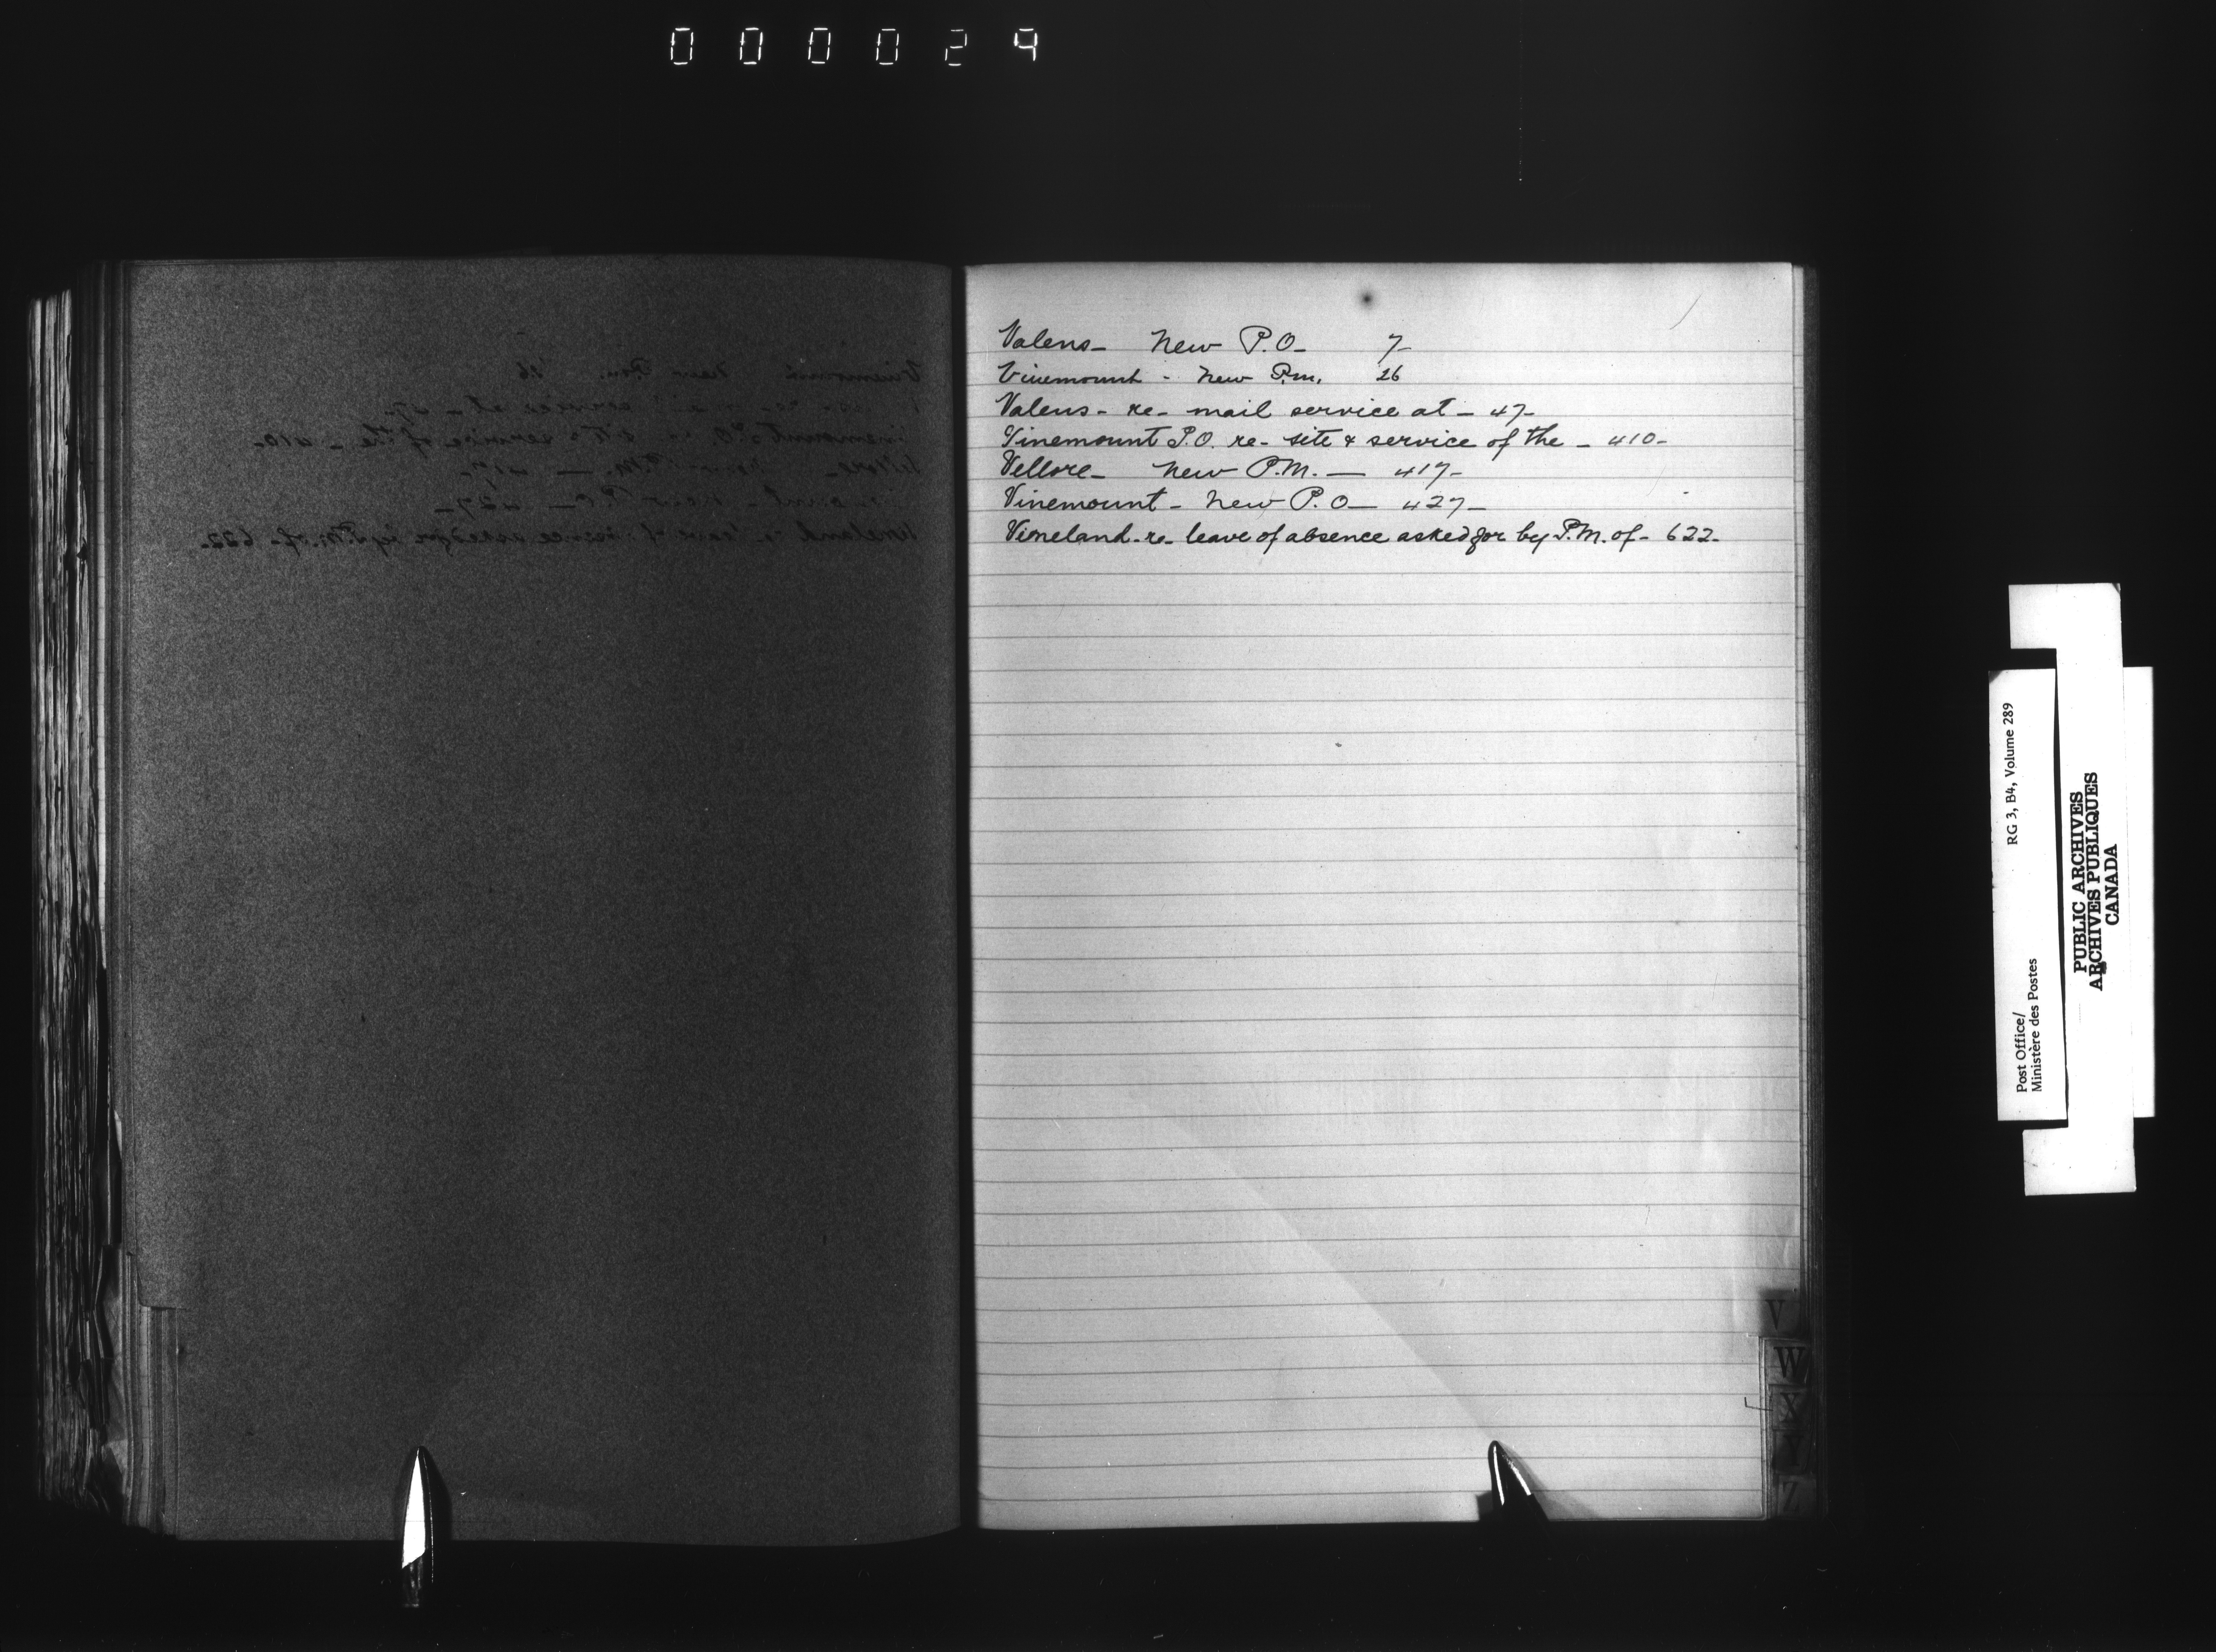 000029
Valens - New P.O - 7 -
Vinemount - New P.m. 26
Valens - re - mail service at - 47 -
Vinemount P.O. re - site & service of the - 410 -
Vellore - New P.M. — 417 -
Vinemount - New P.O — 427 -
Vineland - re - leave of absence asked for by P.M. of - 622 -
V
W
X
Y
Z
Post Office/
Ministère des Postes
RG 3, B4, Volume 289
PUBLIC ARCHIVES
ARCHIVES PUBLIQUES
CANADA